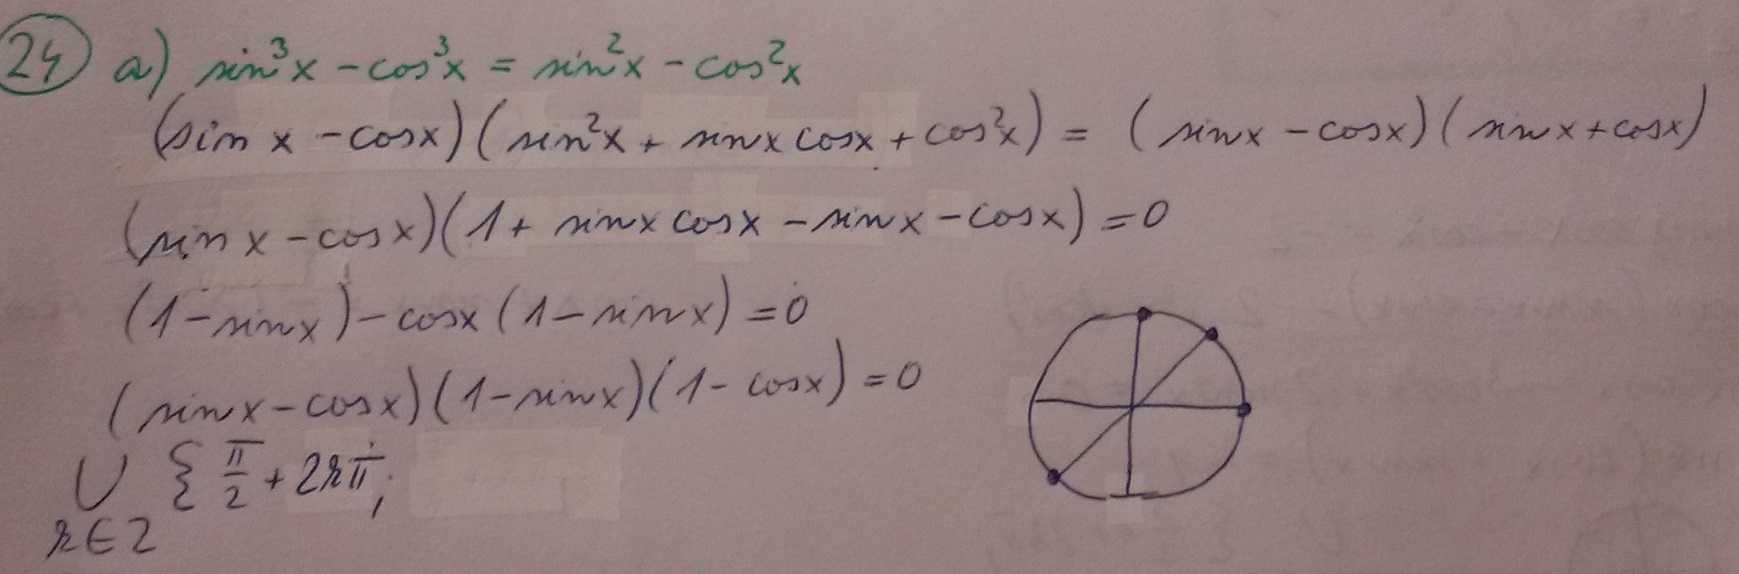 24 a) sin³x - cos³x = sin²x - cos²x
(sin x - cosx)(sin²x + sinx cosx + cos²x) = (sinx - cosx)(sinx + cosx)
(sin x - cosx)(1 + sinx cosx - sinx - cosx) = 0
(1 - sinx) - cosx (1 - sinx) = 0
(sinx - cosx)(1 - sinx)(1 - cosx) = 0
∪ { π/2 + 2kπ;
k∈Z